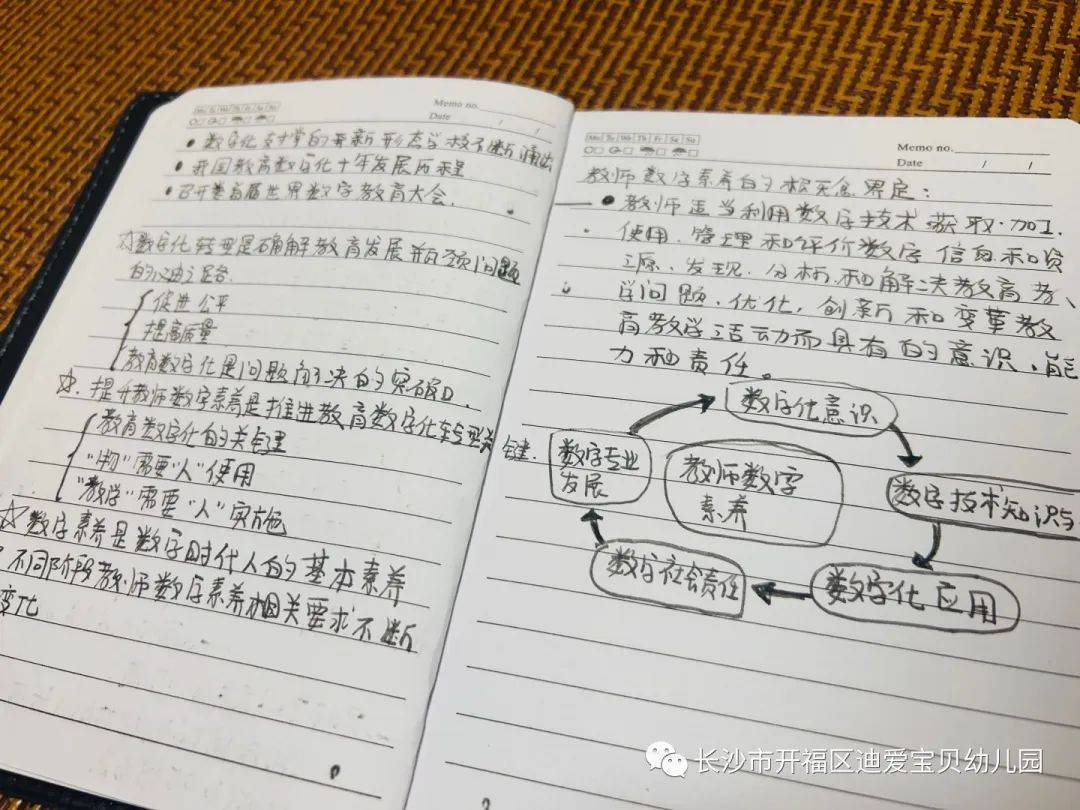 Mo Tu We Th Fr Sa Su
Memo no.
Date / /
• 数字化支撑的开新形态学校不断涌出
• 我国教育数字化十年发展历程
• 召开卷首届世界数字教育大会.
☆数字化转型是破解教育发展瓶颈问题
的必由之路.
促进公平
提高质量
教育数字化是问题解决的突破口.
☆.提升教师数字素养是推进教育数字化转型关键.
教育数字化的关键
“物”需要“人”使用
“教学”需要“人”实施
☆数字素养是数字时代人的基本素养
不同阶段教师数字素养相关要求不断
变化
Mo Tu We Th Fr Sa Su
Memo no.
Date / /
教师数字素养的概念界定:
• 教师适当利用数字技术获取.加工.
使用.管理和评价数字信息和资
源.发现.分析.和解决教育教、
学问题.优化.创新和变革教
育教学活动而具有的意识.能
力和责任。
数字化意识
数字专业
发展
教师数字
素养
数字技术知识与
数字社会责任
数字化应用
长沙市开福区迪爱宝贝幼儿园